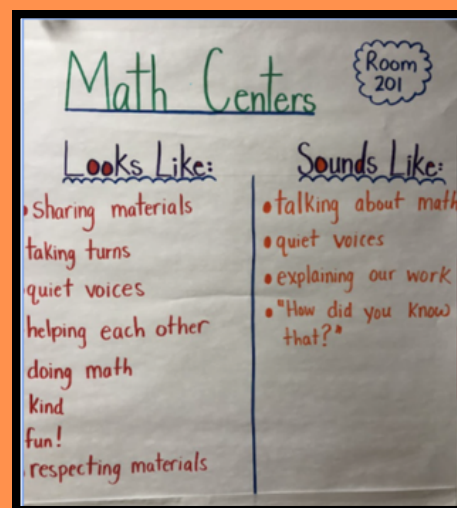 Math Centers
Room
201
Looks Like:
• Sharing materials
taking turns
quiet voices
helping each other
doing math
kind
fun!
respecting materials
Sounds Like:
• talking about math
• quiet voices
• explaining our work
• "How did you know
that?"